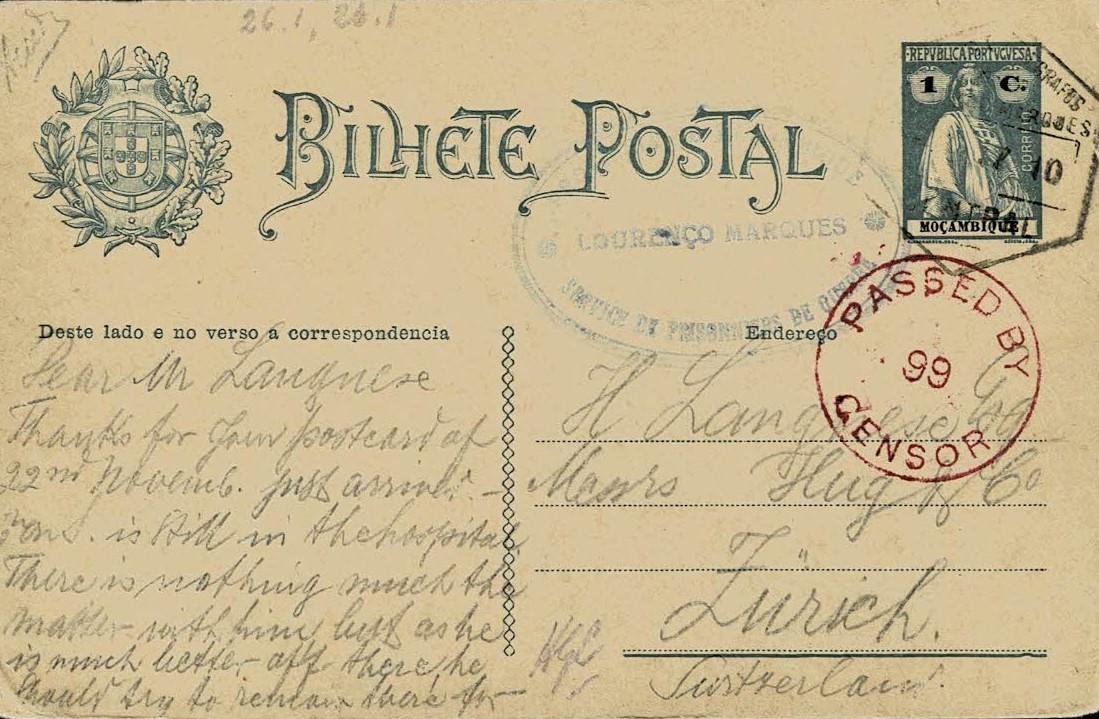 26.1, 26.1
BILHETE POSTAL
REPVBLICA PORTVGVESA
1 C.
CORREIO
MOÇAMBIQUE
MARQUES
10
CENTRAL
LOURENÇO MARQUES
SERVICE DE PRISONNIERS DE GUERRE
PASSED BY
99
CENSOR
Deste lado e no verso a correspondencia
Endereço
Dear Mr Langnese
Thanks for your postcard of
22nd Novemb. just arrived –
is still in the hospital.
There is nothing much the
matter with him, but as he
is much better off there, he
should try to remain there for
H Langnese Esq
Messrs Hug & Co
Zürich.
Switzerland.